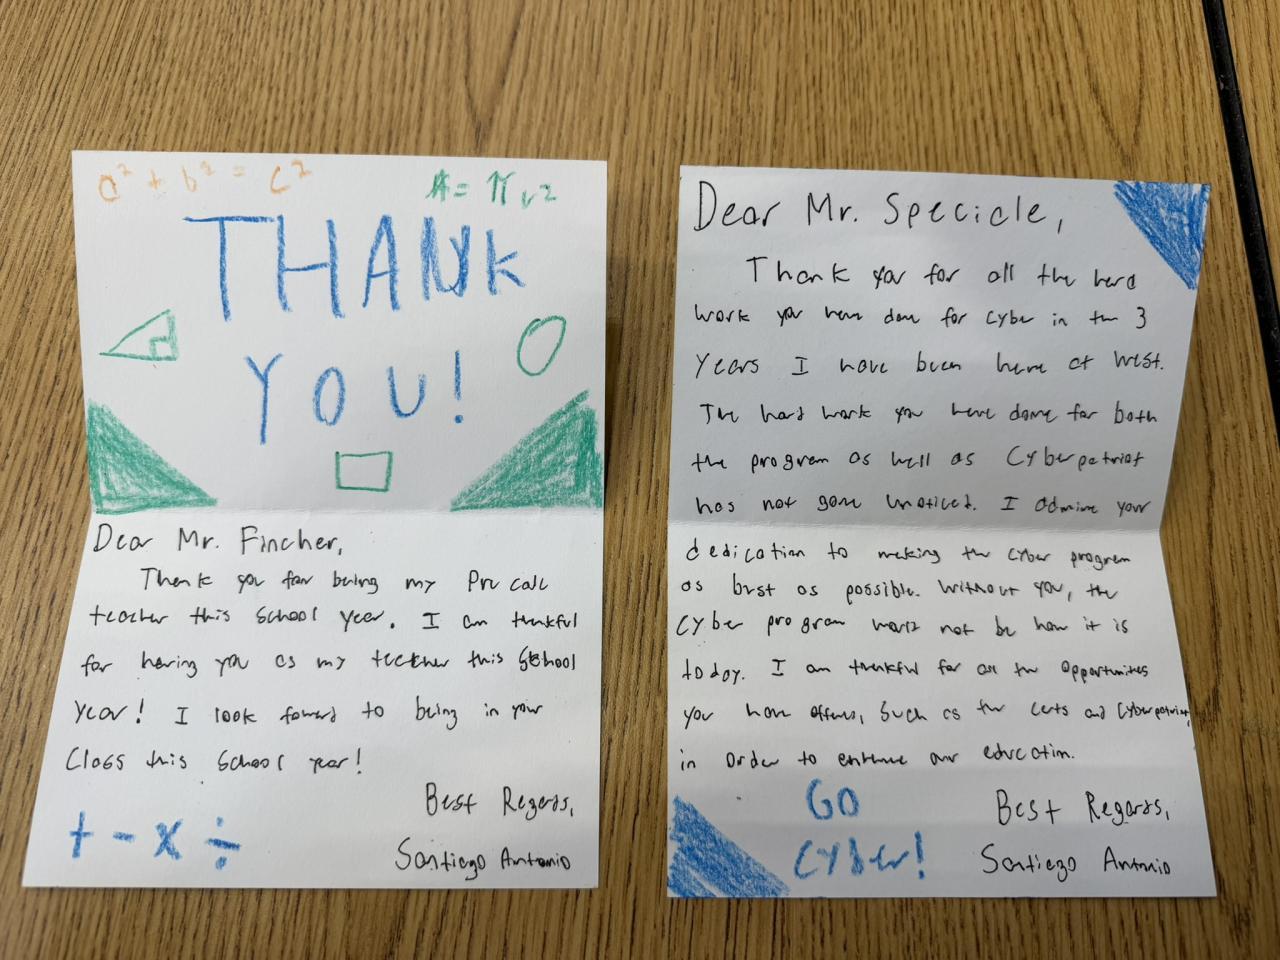 a² + b² = c²
A = πr²
THANK
YOU!
Dear Mr. Fincher,
Thank you for being my Pre calc
teacher this school year. I am thankful
for having you as my teacher this school
year! I look forward to being in your
class this school year!
Best Regards,
Santiago Antonio
+ - x ÷
Dear Mr. Specicle,
Thank you for all the hard
work you have done for Cyber in the 3
years I have been here at West.
The hard work you have done for both
the program as well as Cyberpatriot
has not gone unoticed. I admire your
dedication to making the cyber program
as best as possible. Without you, the
Cyber program not be how it is
today. I am thankful for all the opportunities
you have offered, such as the certs and Cyberpatriot,
in order to enhance our education.
GO
Cyber!
Best Regards,
Santiago Antonio